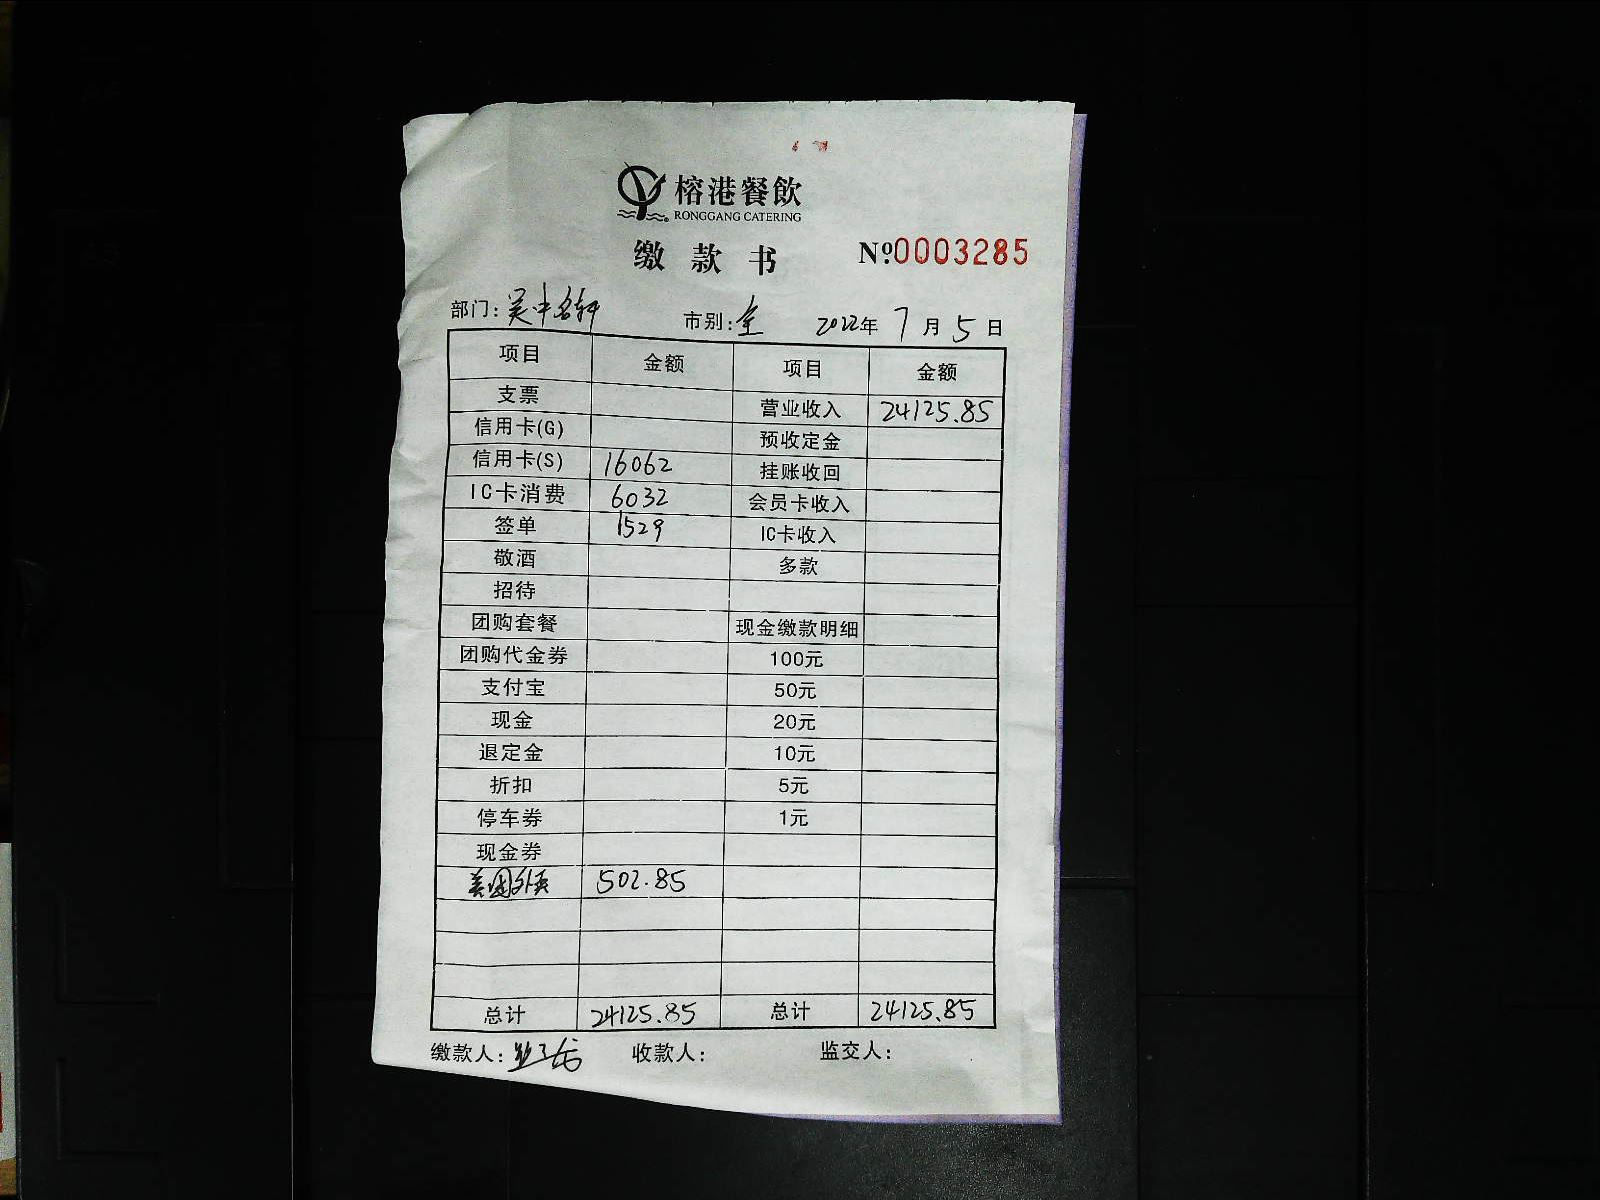 榕港餐飲
RONGGANG CATERING
缴款书 №0003285
部门：吴中名轩 市别：全 2022年7月5日
项目 金额 项目 金额
支票 营业收入 24125.85
信用卡(G) 预收定金
信用卡(S) 16062 挂账收回
IC卡消费 6032 会员卡收入
签单 1529 IC卡收入
敬酒 多款
招待
团购套餐 现金缴款明细
团购代金券 100元
支付宝 50元
现金 20元
退定金 10元
折扣 5元
停车券 1元
现金券
美团外卖 502.85
总计 24125.85 总计 24125.85
缴款人： 收款人： 监交人：